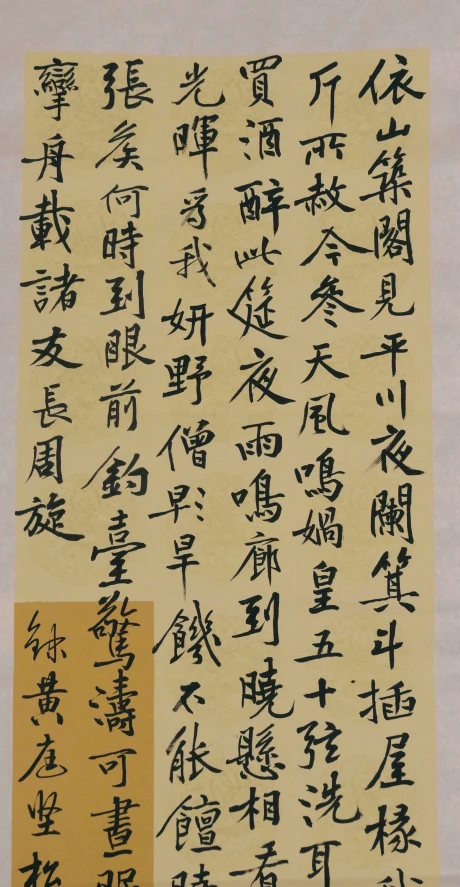 依山築閣見平川夜闌箕斗插屋椽
斤所赦今參天風鳴媧皇五十弦洗耳
買酒醉此筵夜雨鳴廊到曉懸相看
光暉為我妍野僧早旱饑不能饘
張侯何時到眼前釣臺驚濤可晝眠
攣舟載諸友長周旋
錄黃庭坚松